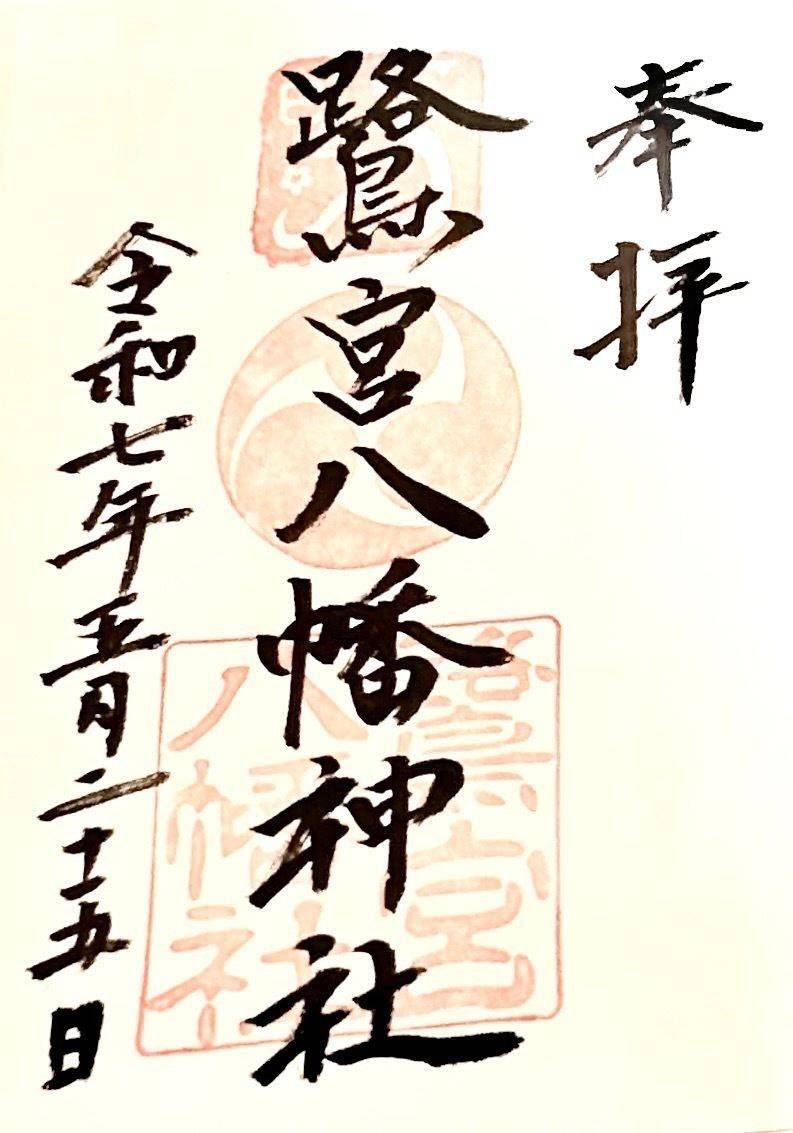 奉拝
鷺宮八幡神社
令和七年五月二十五日
鷺宮
八幡神社